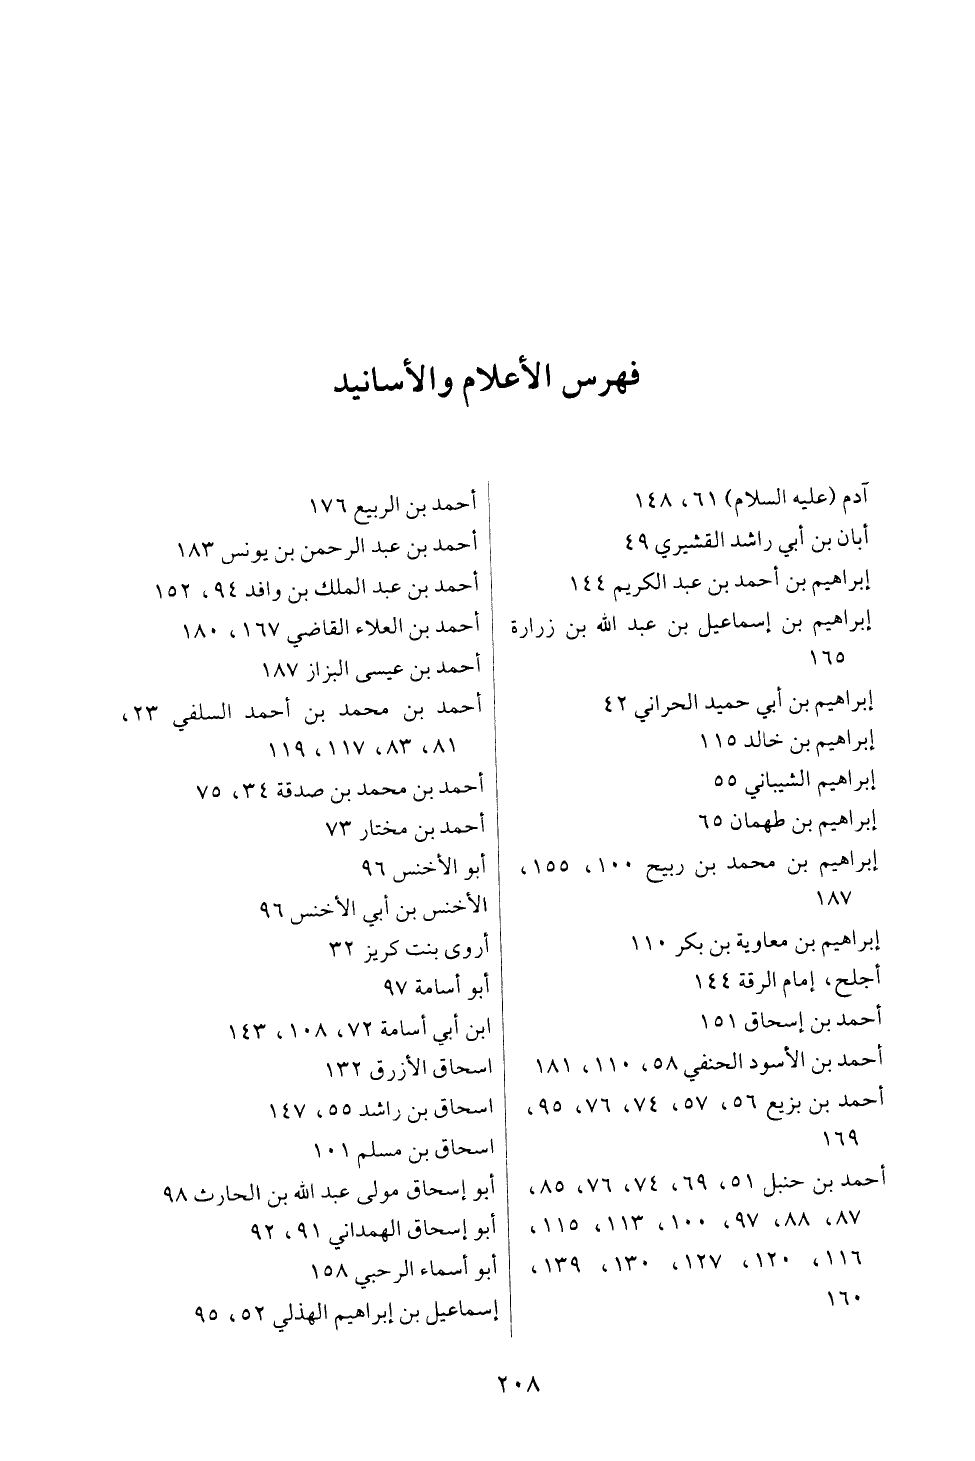 فهرس الأعلام والأسانيد
آدم (عليه السلام) ٦١، ١٤٨
أبان بن أبي راشد القشيري ٤٩
إبراهيم بن أحمد بن عبد الكريم ١٤٤
إبراهيم بن إسماعيل بن عبد الله بن زرارة
١٦٥
إبراهيم بن أبي حميد الحراني ٤٢
إبراهيم بن خالد ١١٥
إبراهيم الشيباني ٥٥
إبراهيم بن طهمان ٦٥
إبراهيم بن محمد بن ربيح ١٠٠، ١٥٥،
١٨٧
إبراهيم بن معاوية بن بكر ١١٠
أجلح، إمام الرقة ١٤٤
أحمد بن إسحاق ١٥١
أحمد بن الأسود الحنفي ٥٨، ١١٠، ١٨١
أحمد بن بزيع ٥٦، ٥٧، ٧٤، ٧٦، ٩٥،
١٦٩
أحمد بن حنبل ٥١، ٦٩، ٧٤، ٧٦، ٨٥،
٨٧، ٨٨، ٩٧، ١٠٠، ١١٣، ١١٥،
١١٦، ١٢٠، ١٢٧، ١٣٠، ١٣٩،
١٦٠
أحمد بن الربيع ١٧٦
أحمد بن عبد الرحمن بن يونس ١٨٣
أحمد بن عبد الملك بن وافد ٩٤، ١٥٢
أحمد بن العلاء القاضي ١٦٧، ١٨٠
أحمد بن عيسى البزاز ١٨٧
أحمد بن محمد بن أحمد السلفي ٢٣،
٨١، ٨٣، ١١٧، ١١٩
أحمد بن محمد بن صدقة ٣٤، ٧٥
أحمد بن مختار ٧٣
أبو الأخنس ٩٦
الأخنس بن أبي الأخنس ٩٦
أروى بنت كريز ٣٢
أبو أسامة ٩٧
ابن أبي أسامة ٧٢، ١٠٨، ١٤٣
اسحاق الأزرق ١٣٢
اسحاق بن راشد ٥٥، ١٤٧
اسحاق بن مسلم ١٠١
أبو إسحاق مولى عبد الله بن الحارث ٩٨
أبو إسحاق الهمداني ٩١، ٩٢
أبو أسماء الرحبي ١٥٨
إسماعيل بن إبراهيم الهذلي ٥٢، ٩٥
٢٠٨